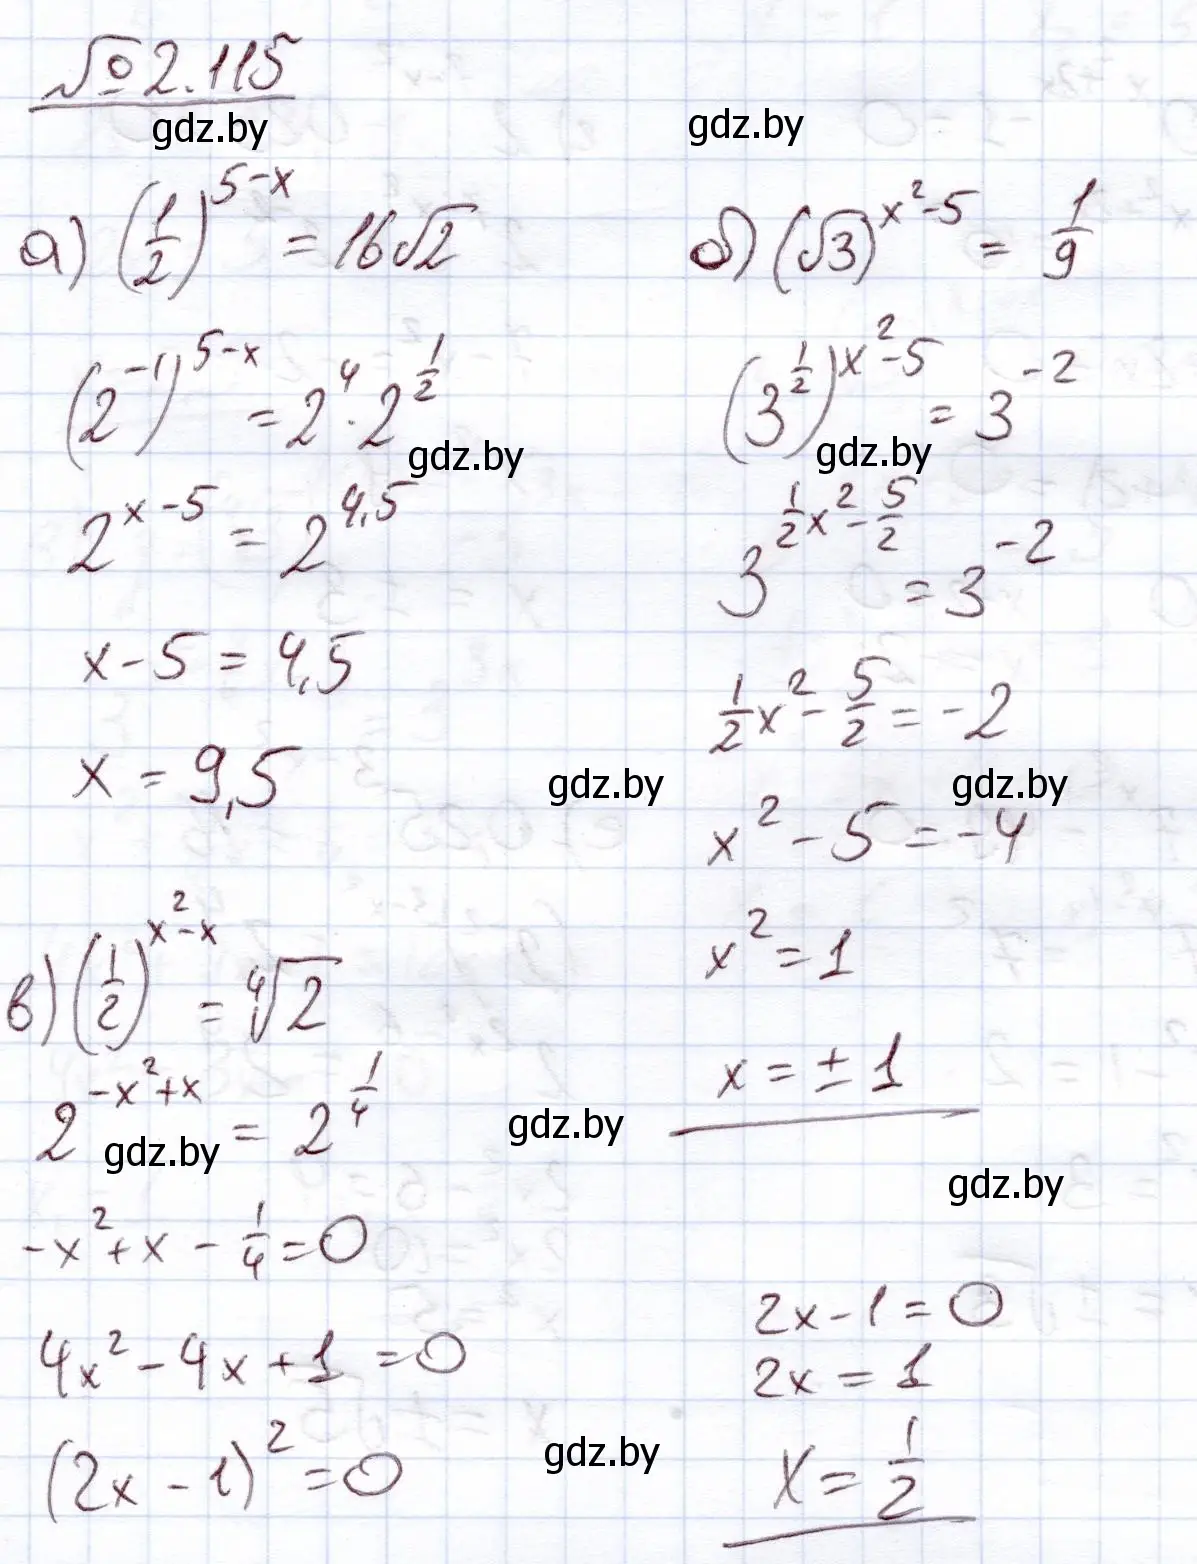 № 2.115
gdz.by
gdz.by
а) (1/2)^(5-x) = 16√2
(2^(-1))^(5-x) = 2^4 · 2^(1/2)
gdz.by
2^(x-5) = 2^(4,5)
x - 5 = 4,5
x = 9,5
gdz.by
б) (√3)^(x²-5) = 1/9
(3^(1/2))^(x²-5) = 3^(-2)
gdz.by
3^(1/2x² - 5/2) = 3^(-2)
1/2x² - 5/2 = -2
gdz.by
x² - 5 = -4
x² = 1
x = ± 1
gdz.by
в) (1/2)^(x²-x) = ⁴√2
2^(-x²+x) = 2^(1/4)
gdz.by
gdz.by
-x² + x - 1/4 = 0
4x² - 4x + 1 = 0
(2x - 1)² = 0
gdz.by
2x - 1 = 0
2x = 1
x = 1/2